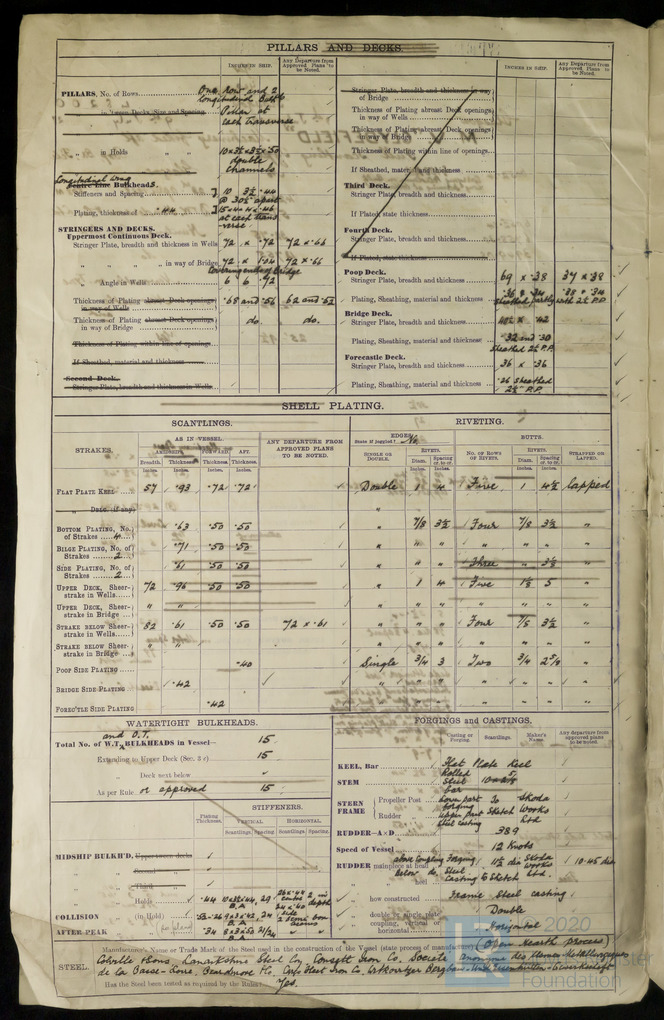 PILLARS AND DECKS.
INCHES IN SHIP.
Any Departure from Approved Plans to be Noted.
PILLARS, No. of Rows
One Row and 2
Longitudinal Bulkhds
in 'tween Decks, Size and Spacing
Pillar at
each transverse
" in Holds
10 x 3½ x 3½ x .50
double
channels
Longitudinal Wing
Centre Line Bulkheads.
Stiffeners and Spacing
10 3½ .44
@ 30½ apart
Plating, thickness of .44
at each trans
verse
STRINGERS AND DECKS.
Uppermost Continuous Deck.
Stringer Plate, breadth and thickness in Wells
72 x .72
72 x .66
" " " in way of Bridge
72 x 1.04
72 x .66
Covering ends of Bridge
" Angle in Wells
6 6 .72
Thickness of Plating abreast Deck openings in way of Wells
.68 and .56
62 and .52
Thickness of Plating abreast Deck openings in way of Bridge
do.
do.
Thickness of Plating within line of openings
If Sheathed, material and thickness
Second Deck.
Stringer Plate, breadth and thickness in Wells
INCHES IN SHIP.
Any Departure from Approved Plans to be Noted.
Stringer Plate, breadth and thickness in way of Bridge
Thickness of Plating abreast Deck openings in way of Wells
Thickness of Plating abreast Deck openings in way of Bridge
Thickness of Plating within line of openings
If Sheathed, material and thickness
Third Deck.
Stringer Plate, breadth and thickness
If Plated, state thickness
Fourth Deck.
Stringer Plate, breadth and thickness
If Plated, state thickness
Poop Deck.
Stringer Plate, breadth and thickness
69 x .38
37 x .38
Plating, Sheathing, material and thickness
.36 x .34
.38 x .34
sheathed partly with 2½ P.P.
Bridge Deck.
Stringer Plate, breadth and thickness
48½ x .42
Plating, Sheathing, material and thickness
.32 and .30
sheathed 2½ P.P.
Forecastle Deck.
Stringer Plate, breadth and thickness
36 x .36
Plating, Sheathing, material and thickness
.26 sheathed
2½" P.P.
SHELL PLATING.
SCANTLINGS.
RIVETING.
STRAKES.
AS IN VESSEL.
ANY DEPARTURE FROM APPROVED PLANS TO BE NOTED.
EDGES
State if joggled? No
BUTTS.
AMIDSHIPS. FORWARD. AFT.
Breadth. Thickness. Thickness. Thickness.
SINGLE OR DOUBLE.
RIVETS.
Diam. Spacing cr. to cr.
No. of Rows of Rivets.
RIVETS.
Diam. Spacing cr. to cr.
STRAPPED OR LAPPED.
Inches. Inches. Inches. Inches.
FLAT PLATE KEEL 57 .93 .72 .72 Double 1 4 Five 1 4½ Lapped
" Dble. (if any)
BOTTOM PLATING, No. of Strakes 4 .63 .50 .50 " 7/8 3½ Four 7/8 3½ "
BILGE PLATING, No. of Strakes 2 .71 .50 .50 " " " " " " "
SIDE PLATING, No. of Strakes 2 .61 .50 .50 " " " Three " 3⅛ "
UPPER DECK, Sheerstrake in Wells 72 .96 .50 .50 " 1 4 Five 1⅛ 5 "
UPPER DECK, Sheerstrake in Bridge " " " " " " " " "
STRAKE BELOW Sheerstrake in Wells 82 .61 .50 .50 72 x .61 " " " Four 7/8 3½ "
STRAKE BELOW Sheerstrake in Bridge " " " " " " " " "
POOP SIDE PLATING .40 Single 3/4 3 Two 3/4 2⅝ "
BRIDGE SIDE PLATING .42 " " " " " " "
FOREC'TLE SIDE PLATING .42
WATERTIGHT BULKHEADS.
and O.T.
Total No. of W.T. BULKHEADS in Vessel— 15
Extending to Upper Deck (Sec. 3 c) 15
" Deck next below
As per Rule or approved 15
Plating Thickness.
STIFFENERS.
VERTICAL
HORIZONTAL
Scantlings. Spacing. Scantlings. Spacing.
MIDSHIP BULKH'D, Upper tween decks
" Second "
" Third "
" Holds
COLLISION " (in Hold)
AFTER PEAK "
FORGINGS and CASTINGS.
Casting or Forging.
Scantlings.
Maker's Name.
Any departure from approved plans to be noted.
KEEL, Bar Flat Plate Keel
STEM Rolled Steel bar
STERN FRAME
Propeller Post
Rudder "
Lower part forging
upper part
Steel casting
To Sketch
Skoda
Works
Ltd
RUDDER—A x D 389
Speed of Vessel 12 Knots
RUDDER mainpiece at head
above Coupling Forging 11½ dia Skoda 10.45 dia
below do. Steel Works
Casting to Sketch Ltd.
" " heel
" how constructed Frame Steel casting
" double or single plate Double
" coupling, vertical or horizontal Horizontal
STEEL.
Manufacturer's Name or Trade Mark of the Steel used in the construction of the vessel (state process of manufacture) (Open Hearth process)
Colville & Sons, Lanarkshire Steel Coy, Consett Iron Co. Societe anonyme des Usines Metallurgiques
de la Basse-Loire, Beardmore
Has the Steel been tested as required by the Rules? Yes.
© 2020
Foundation